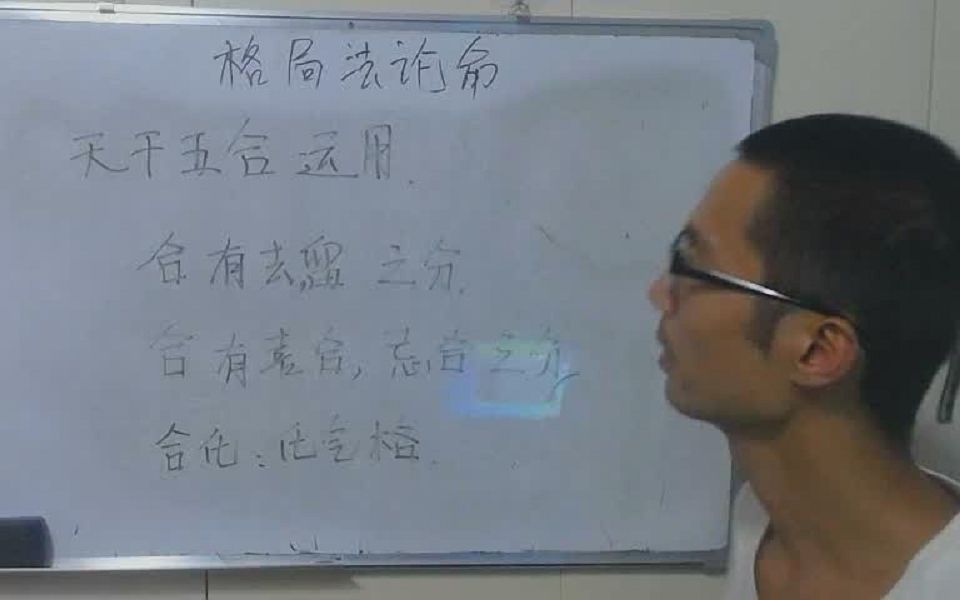 格局法论命
天干五合 运用.
合有去留 之分.
合有喜合, 忌合之分
合化:化气格.